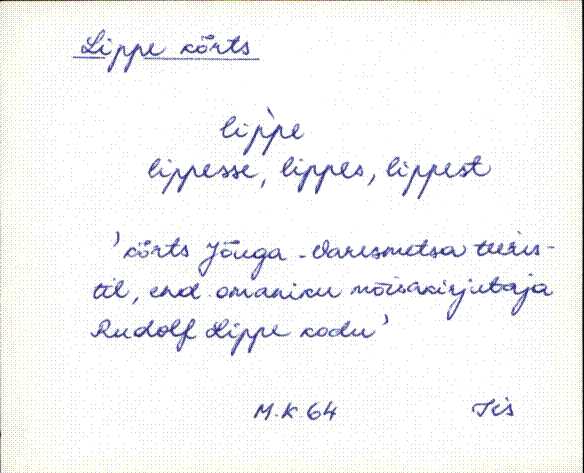 Lippe kõrts
lip`pe
lippesse, lippes, lippest
'kõrts Jõuga-Varesmetsa teeris-
til, end. omaniku mõisakirjutaja
Rudolf Lippe kodu'
M.K 64 Iis